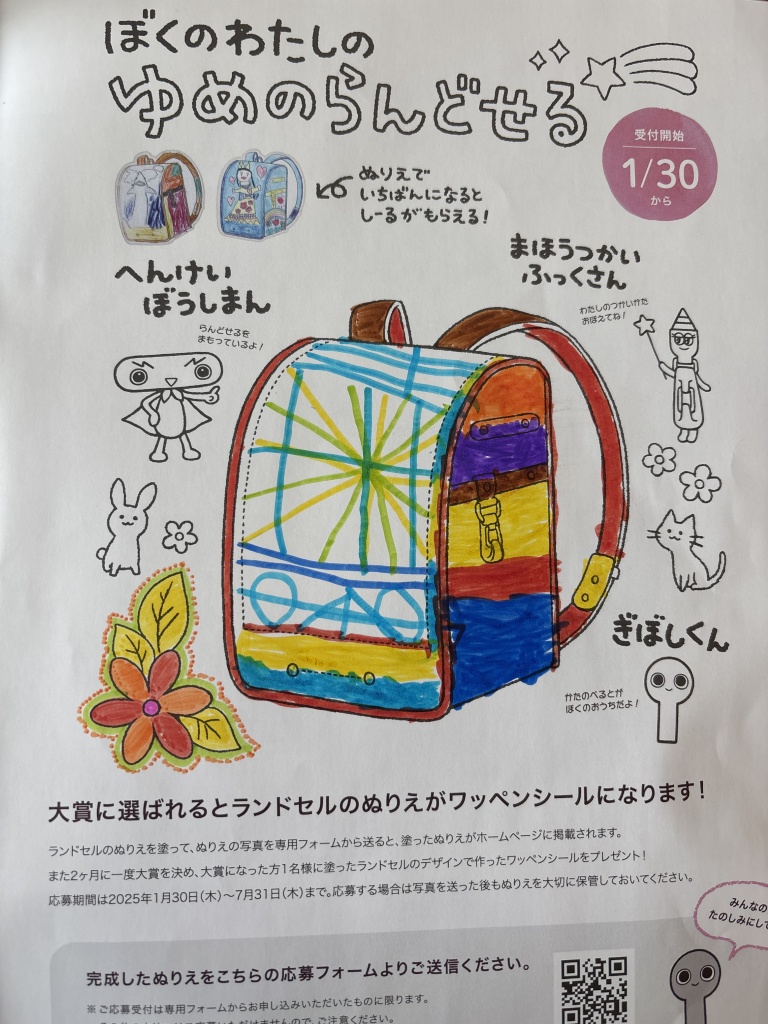 ぼくのわたしの
ゆめのらんどせる
受付開始
1/30
から
ぬりえで
いちばんになると
しーるがもらえる!
まほうつかい
ふっくさん
わたしのつかいかた
おぼえてね!
へんけい
ぼうしまん
らんどせるを
まもっているよ!
ぎぼしくん
かたのべるとが
ぼくのおうちだよ!
大賞に選ばれるとランドセルのぬりえがワッペンシールになります!
ランドセルのぬりえを塗って、ぬりえの写真を専用フォームから送ると、塗ったぬりえがホームページに掲載されます。
また2ヶ月に一度大賞を決め、大賞になった方1名様に塗ったランドセルのデザインで作ったワッペンシールをプレゼント!
応募期間は2025年1月30日(木)〜7月31日(木)まで。応募する場合は写真を送った後もぬりえを大切に保管しておいてください。
みんなの
たのしみにして
完成したぬりえをこちらの応募フォームよりご送信ください。
※ご応募受付は専用フォームからお申し込みいただいたものに限ります。